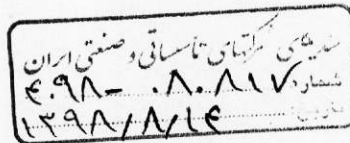 سندیکای شرکتهای تاسیساتی و صنعتی ایران
شماره: ۴۰۹۸- ۰۸۰۸۱۷
تاریخ: ۱۳۹۸/۸/۱۴